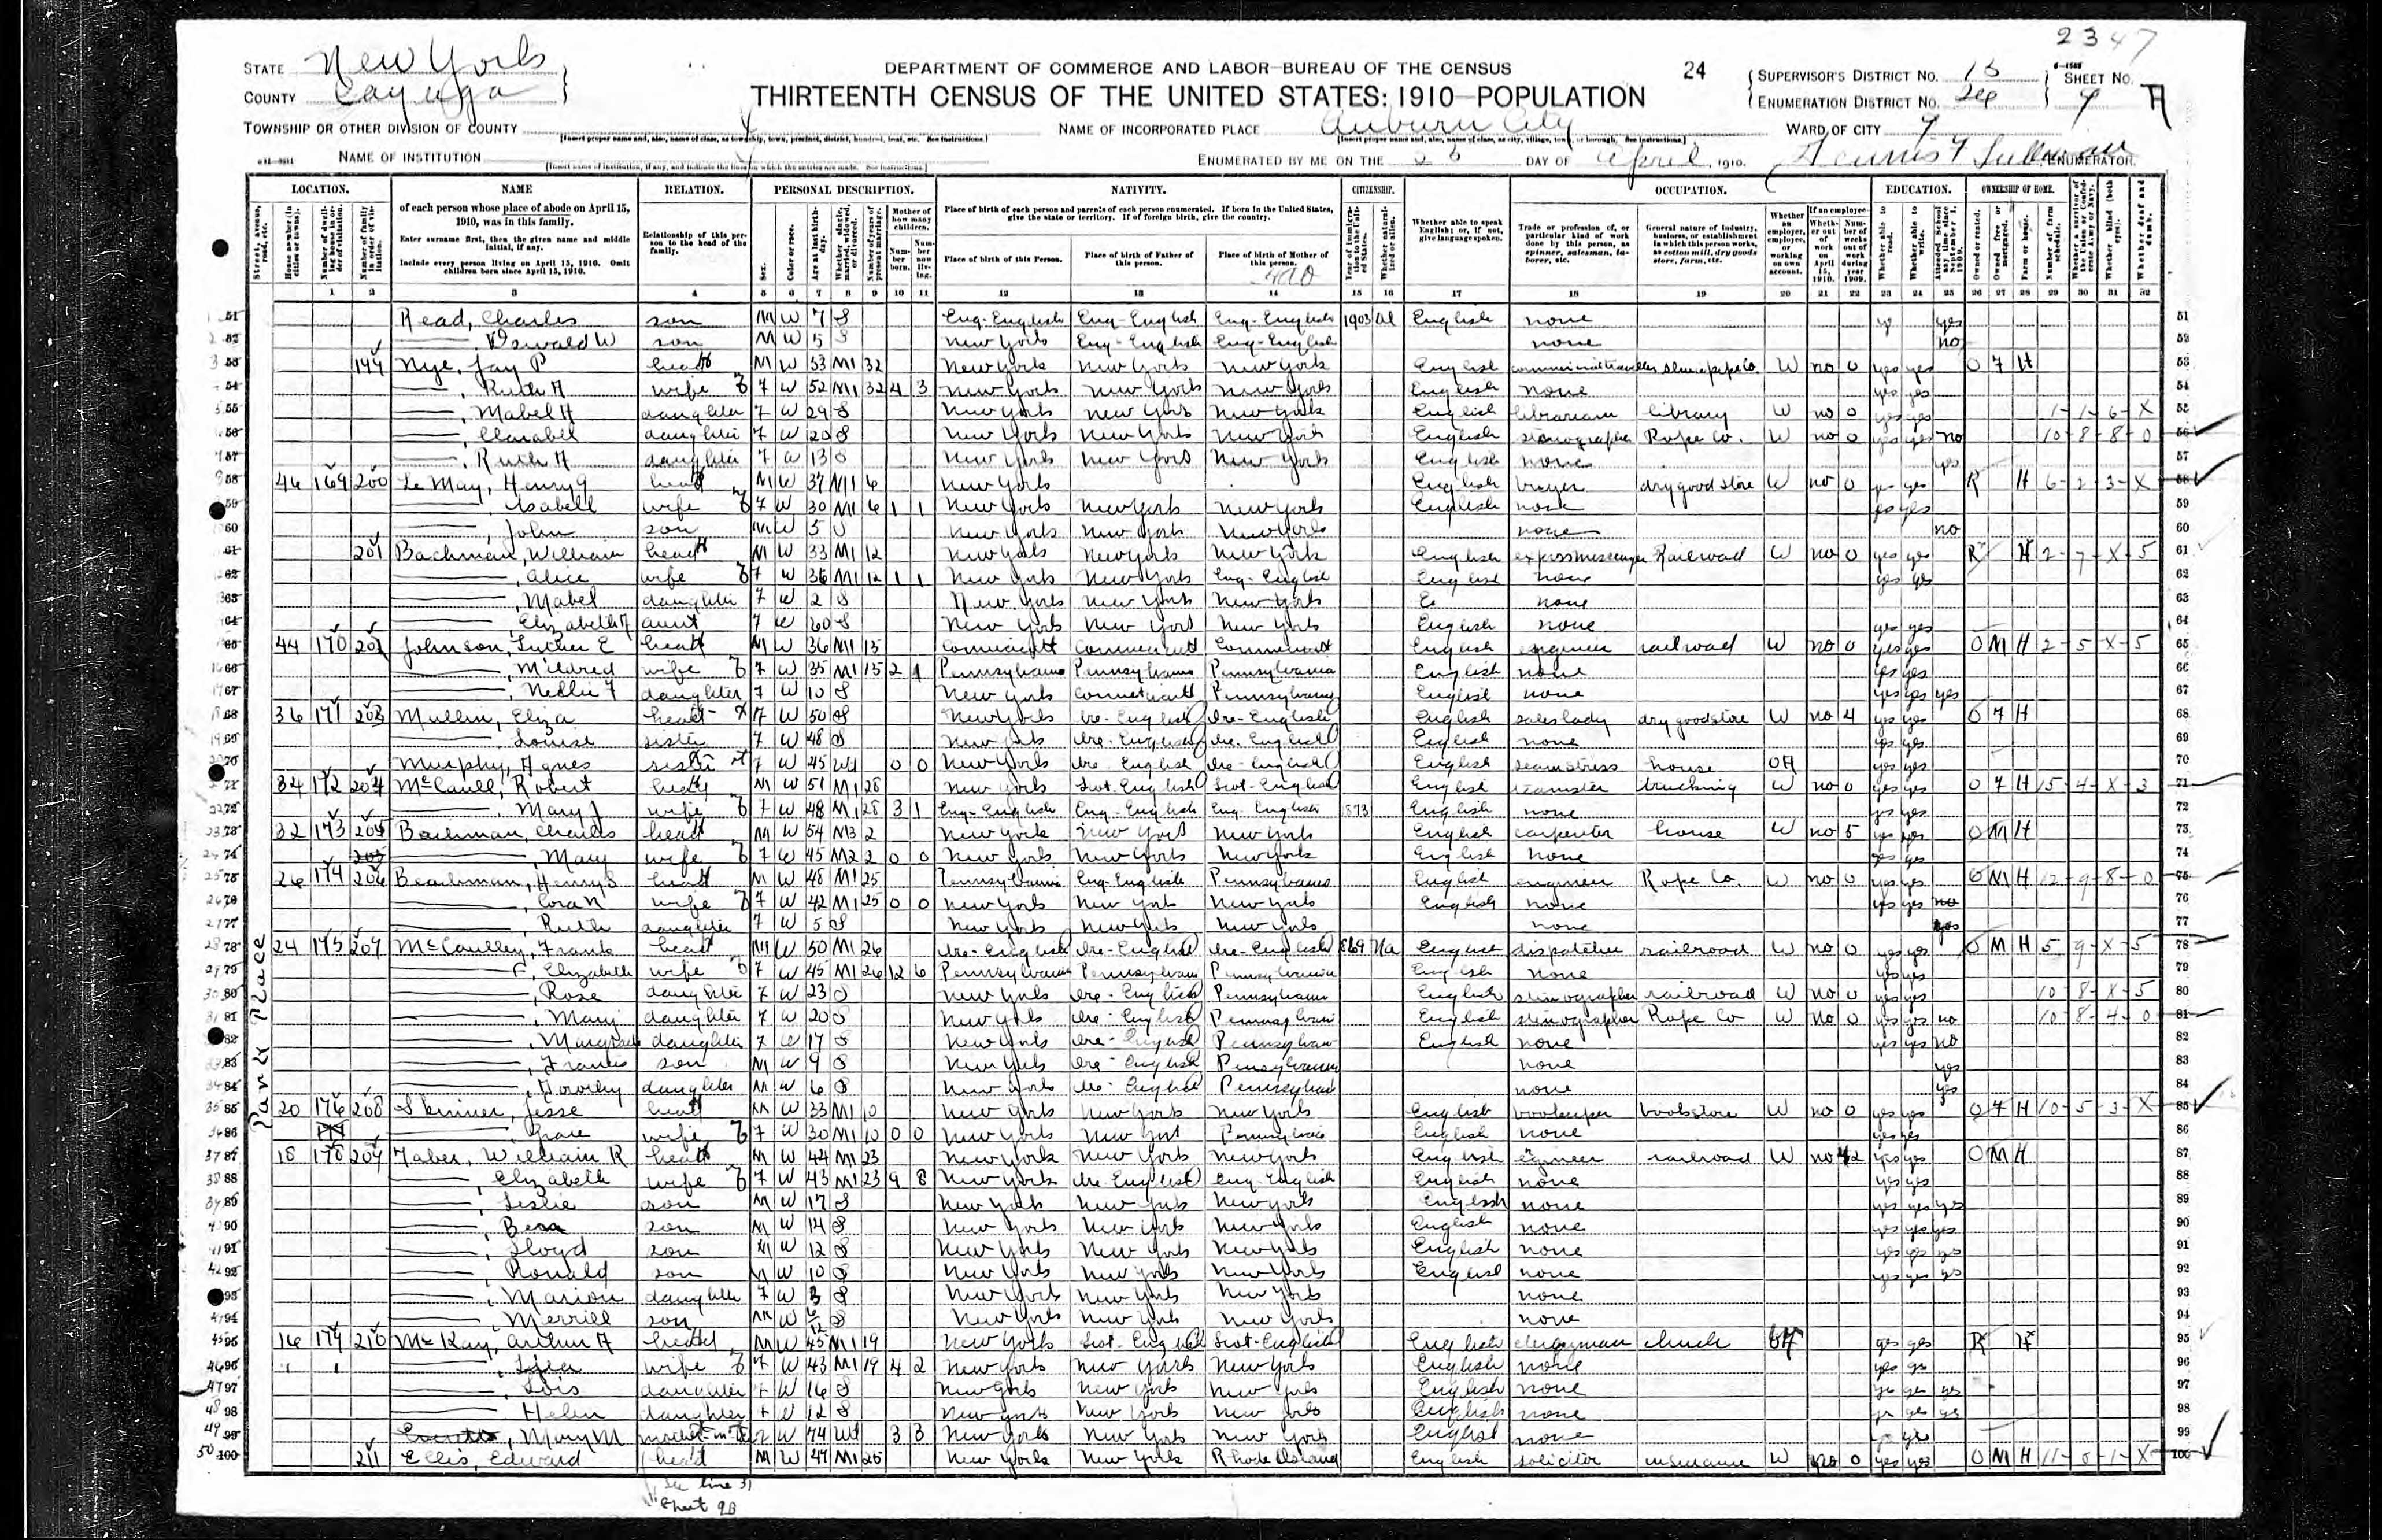 2347
STATE New York
COUNTY Cayuga
DEPARTMENT OF COMMERCE AND LABOR—BUREAU OF THE CENSUS
24
THIRTEENTH CENSUS OF THE UNITED STATES: 1910—POPULATION
SUPERVISOR'S DISTRICT No. 15
ENUMERATION DISTRICT No.
SHEET No. 9 A
TOWNSHIP OR OTHER DIVISION OF COUNTY
NAME OF INCORPORATED PLACE Auburn City
WARD OF CITY 9
NAME OF INSTITUTION
ENUMERATED BY ME ON THE DAY OF April, 1910. Dennis F Sullivan, ENUMERATOR.
LOCATION. NAME RELATION. PERSONAL DESCRIPTION. NATIVITY. CITIZENSHIP. OCCUPATION. EDUCATION. OWNERSHIP OF HOME.
of each person whose place of abode on April 15, 1910, was in this family.
Enter surname first, then the given name and middle initial, if any.
Include every person living on April 15, 1910. Omit children born since April 15, 1910.
Relationship of this person to the head of the family.
Place of birth of each person and parents of each person enumerated. If born in the United States, give the state or territory. If of foreign birth, give the country.
Place of birth of this Person. Place of birth of Father of this person. Place of birth of Mother of this person.
Whether able to speak English; or, if not, give language spoken.
Trade or profession of, or particular kind of work done by this person, as spinner, salesman, laborer, etc.
General nature of industry, business, or establishment in which this person works, as cotton mill, dry goods store, farm, etc.
1 2 3 4 5 6 7 8 9 10 11 12 13 14 15 16 17 18 19 20 21 22 23 24 25 26 27 28 29 30 31 32
Park Place
51 Read, Charles son M W 7 S Eng-English Eng-English Eng-English 1903 al English none yes 51
52 Oswald W son M W 5 S New York Eng-English Eng-English none no 52
53 Nye, Jay P head M W 53 M1 32 New York New York New York English W no 0 yes yes O F H 53
54 Ruth A wife F W 52 M1 32 4 3 New York New York New York English none yes yes 54
55 Mabel H daughter F W 29 S New York New York New York English librarian library W no 0 yes yes 1-1-6-X
56 Clarabel daughter F W 20 S New York New York New York English stenographer Rope Co. W no 0 yes yes no 10-8-8-0 56
57 Ruth A daughter F W 13 S New York New York New York English none yes 57
58 46 169 200 Le May, Henry G head M W 37 M1 6 New York English buyer dry good store W no 0 yes yes R H 6-2-3-X 58
59 Isabell wife F W 30 M1 6 1 1 New York New York New York English none yes yes 59
60 John son M W 5 S New York New York New York none no 60
61 201 Bachman, William head M W 33 M1 12 New York New York New York English express messenger Railroad W no 0 yes yes R H 2-7-X-5 61
62 Alice wife F W 36 M1 12 1 1 New York New York Eng-English English none yes yes 62
63 Mabel daughter F W 2 S New York New York New York none 63
64 Elizabeth A aunt F W 60 S New York New York New York English none yes yes 64
65 44 170 202 Johnson, Luther E head M W 36 M1 15 Connecticut Connecticut Connecticut English engineer railroad W no 0 yes yes O M H 2-5-X-5 65
66 Mildred wife F W 35 M1 15 2 1 Pennsylvania Pennsylvania Pennsylvania English none yes yes 66
67 Nellie F daughter F W 10 S New York Connecticut Pennsylvania English none yes yes yes 67
68 36 171 203 Mullin, Eliza head F W 50 S New York Ire-English Ire-English English saleslady dry good store W no 4 yes yes O F H 68
69 Louise sister F W 48 S New York Ire-English Ire-English English none yes yes 69
70 Murphy, Agnes sister F W 45 Wd 0 0 New York Ire-English Ire-English English seamstress house OA yes yes 70
71 34 172 204 McCaull, Robert head M W 51 M1 28 New York Scot-English Scot-English English teamster trucking W no 0 yes yes O F H 15-4-X-3 71
72 Mary J wife F W 48 M1 28 3 1 Eng-English Eng-English Eng-English 1873 English none yes yes 72
73 32 173 205 Bachman, Charles head M W 54 M3 2 New York New York New York English carpenter house W no 5 yes yes O M H 73
74 Mary wife F W 45 M2 2 0 0 New York New York New York English none yes yes 74
75 26 174 206 Beachman, Henry S head M W 48 M1 25 Pennsylvania Eng-English Pennsylvania English engineer Rope Co. W no 0 yes yes O M H 12-9-8-0 75
76 Cora N wife F W 42 M1 25 0 0 New York New York New York English none yes yes no 76
77 Ruth daughter F W 5 S New York New York New York none 77
78 24 175 207 McCaulley, Frank head M W 50 M1 26 Ire-English Ire-English Ire-English 1869 Na English dispatcher railroad W no 0 yes yes O M H 5-9-X-5 78
79 Elizabeth wife F W 45 M1 26 12 6 Pennsylvania Pennsylvania Pennsylvania English none yes yes 79
80 Rose daughter F W 23 S New York Ire-English Pennsylvania English stenographer railroad W no 0 yes yes 10-8-X-5 80
81 Mary daughter F W 20 S New York Ire-English Pennsylvania English stenographer Rope Co W no 0 yes yes no 10-8-4-0 81
82 daughter F W 17 S New York Ire-English Pennsylvania English none yes yes no 82
83 Francis son M W 9 S New York Ire-English Pennsylvania none yes 83
84 Dorothy daughter M W 6 S New York Ire-English Pennsylvania none yes 84
85 20 176 208 Skinner, Jesse head M W 33 M1 10 New York New York New York English bookeeper bookstore W no 0 yes yes O F H 10-5-3-X 85
86 Grace wife F W 30 M1 10 0 0 New York New York Pennsylvania English none yes yes 86
87 18 178 209 Faber, William R head M W 44 M1 23 New York New York New York English engineer railroad W no 42 yes yes O M H 87
88 Elizabeth wife F W 43 M1 23 9 8 New York Ire-English Eng-English English none yes yes 88
89 Leslie son M W 17 S New York New York New York English none yes yes yes 89
90 son M W 14 S New York New York New York English none yes yes yes 90
91 Lloyd son M W 12 S New York New York New York English none yes yes yes 91
92 Ronald son M W 10 S New York New York New York English none yes yes yes 92
93 Marion daughter F W 3 S New York New York New York none 93
94 Merrill son M W 6/12 S New York New York New York none 94
95 16 179 210 McKay, Arthur A head M W 45 M1 19 New York Scot-English Scot-English English clergyman church yes yes R H 95
96 wife F W 43 M1 19 4 2 New York New York New York English none yes yes 96
97 Lois daughter F W 16 S New York New York New York English none yes yes yes 97
98 Helen daughter F W 12 S New York New York New York English none yes yes yes 98
99 Everetts, Mary M mother-in-L F W 74 Wd 3 3 New York New York New York English none yes yes 99
100 211 Ellis, Edward head M W 47 M1 25 New York New York Rhode Island English solicitor insurance W no 0 yes yes O M H 11-0-1-X 100
See line 51
Sheet 9B